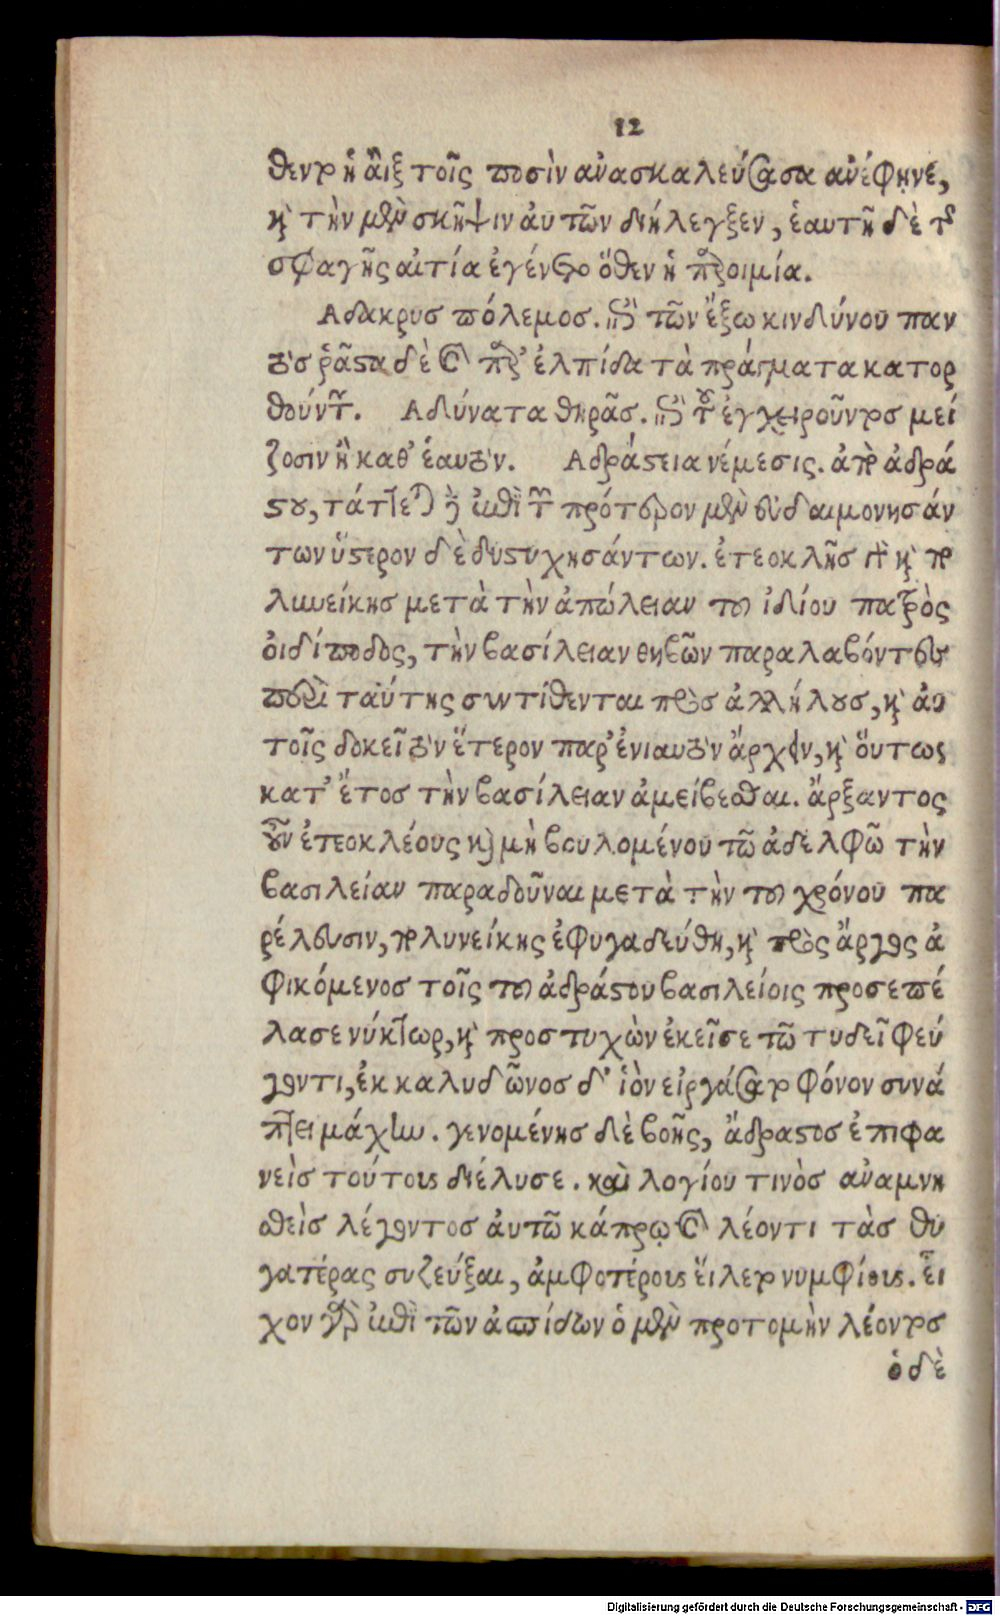 12
θεντο ἡ ἂιξ τοῖς ποσὶν ἀνασκαλεύσασα ἀνέφηνε,
καὶ τὴν μὲν σκῆψιν ἀυτῶν διήλεγξεν, ἑαυτῆ δὲ τῆς
σφαγῆς αἰτία ἐγένετο ὅθεν ἡ παροιμία.
Αδακρυσ πόλεμοσ. ἐπὶ τῶν ἔξω κινδύνου παν
τὸσ ῥᾶστα δὲ καὶ παρ' ἐλπίδα τὰ πράγματα κατορ
θούντων. Αδύνατα θηρᾶσ. ἐπὶ τοῦ ἐγχειροῦντοσ μεί
ζοσιν ἢ καθ' ἑαυτὸν. Αδράστεια νέμεσις. ἀπὸ ἀδρά
στου, τάττεται ἐπὶ τῶν πρότερον μὲν εὐδαιμονησάν
των ὕστερον δὲ δυστυχησάντων. ἐτεοκλῆσ γὰρ καὶ πο
λυνείκησ μετὰ τὴν ἀπώλειαν του ἰδίου πατρὸς
ὀιδίποδος, τὴν βασίλειαν θηβῶν παραλαβόντες
περὶ ταύτης συντίθενται πρὸσ ἀλλήλουσ, καὶ ἀυ
τοῖς δοκεῖ τὸν ἕτερον παρ' ἐνιαυτὸν ἄρχειν, καὶ ὅυτως
κατ' ἔτοσ τὴν βασίλειαν ἀμείβεσθαι. ἄρξαντος
οὖν ἐτεοκλέους καὶ μὴ βουλομένου τῶ ἀδελφῶ τὴν
βασιλείαν παραδοῦναι μετὰ τὴν του χρόνου πα
ρέλευσιν, πολυνείκης ἐφυγαδεύθη, καὶ πρὸς ἄργος ἀ
φικόμενοσ τοῖς του ἀδράστου βασιλείοις προσεπέ
λασε νύκτωρ, καὶ προστυχὼν ἐκεῖσε τῶ τυδεῖ φεύ
γοντι, ἐκ καλυδῶνοσ δ' ἱὸν εἰργάσατο φόνον συνά
πτει μάχιω. γενομένησ δὲ βοῆς, ἄδραστοσ ἐπιφα
νεὶσ τούτους διέλυσε. καὶ λογίου τινὸσ ἀναμνη
σθεὶσ λέγοντοσ ἀυτῶ κάπρῳ καὶ λέοντι τὰσ θυ
γατέρας συζεύξαι, ἀμφοτέρους ἕιλετο νυμφίους. εἶ
χον γὰρ ἐπὶ τῶν ἀσπίδων ὁ μὲν προτομὴν λέοντοσ
ὁ δὲ
Digitalisierung gefördert durch die Deutsche Forschungsgemeinschaft - DFG